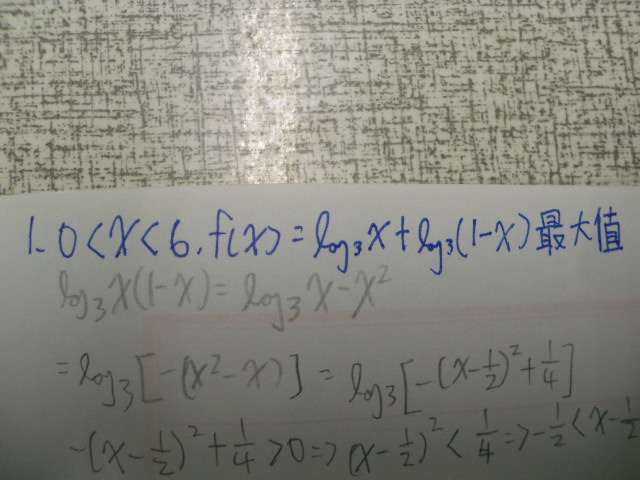 1. 0<x<6. f(x)=log₃x+log₃(1-x)最大值
log₃x(1-x)=log₃x-x²
=log₃[-(x²-x)]=log₃[-(x-1/2)²+1/4]
-(x-1/2)²+1/4>0=>(x-1/2)²<1/4=>-1/2<x-1/2